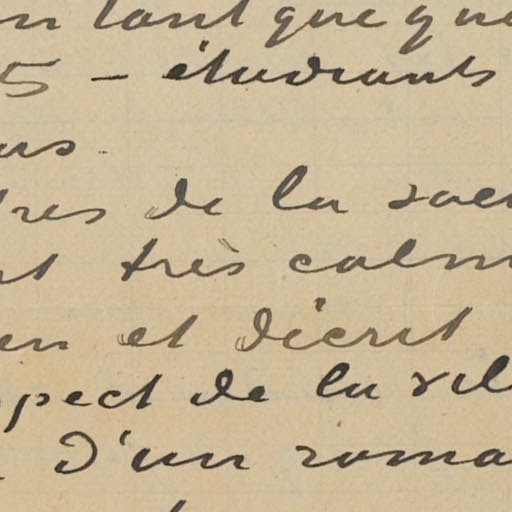 n tant que que
5 – étudiants
us.
res de la soci
nt très calm
en et décrit
spect de la vil
D'un roma